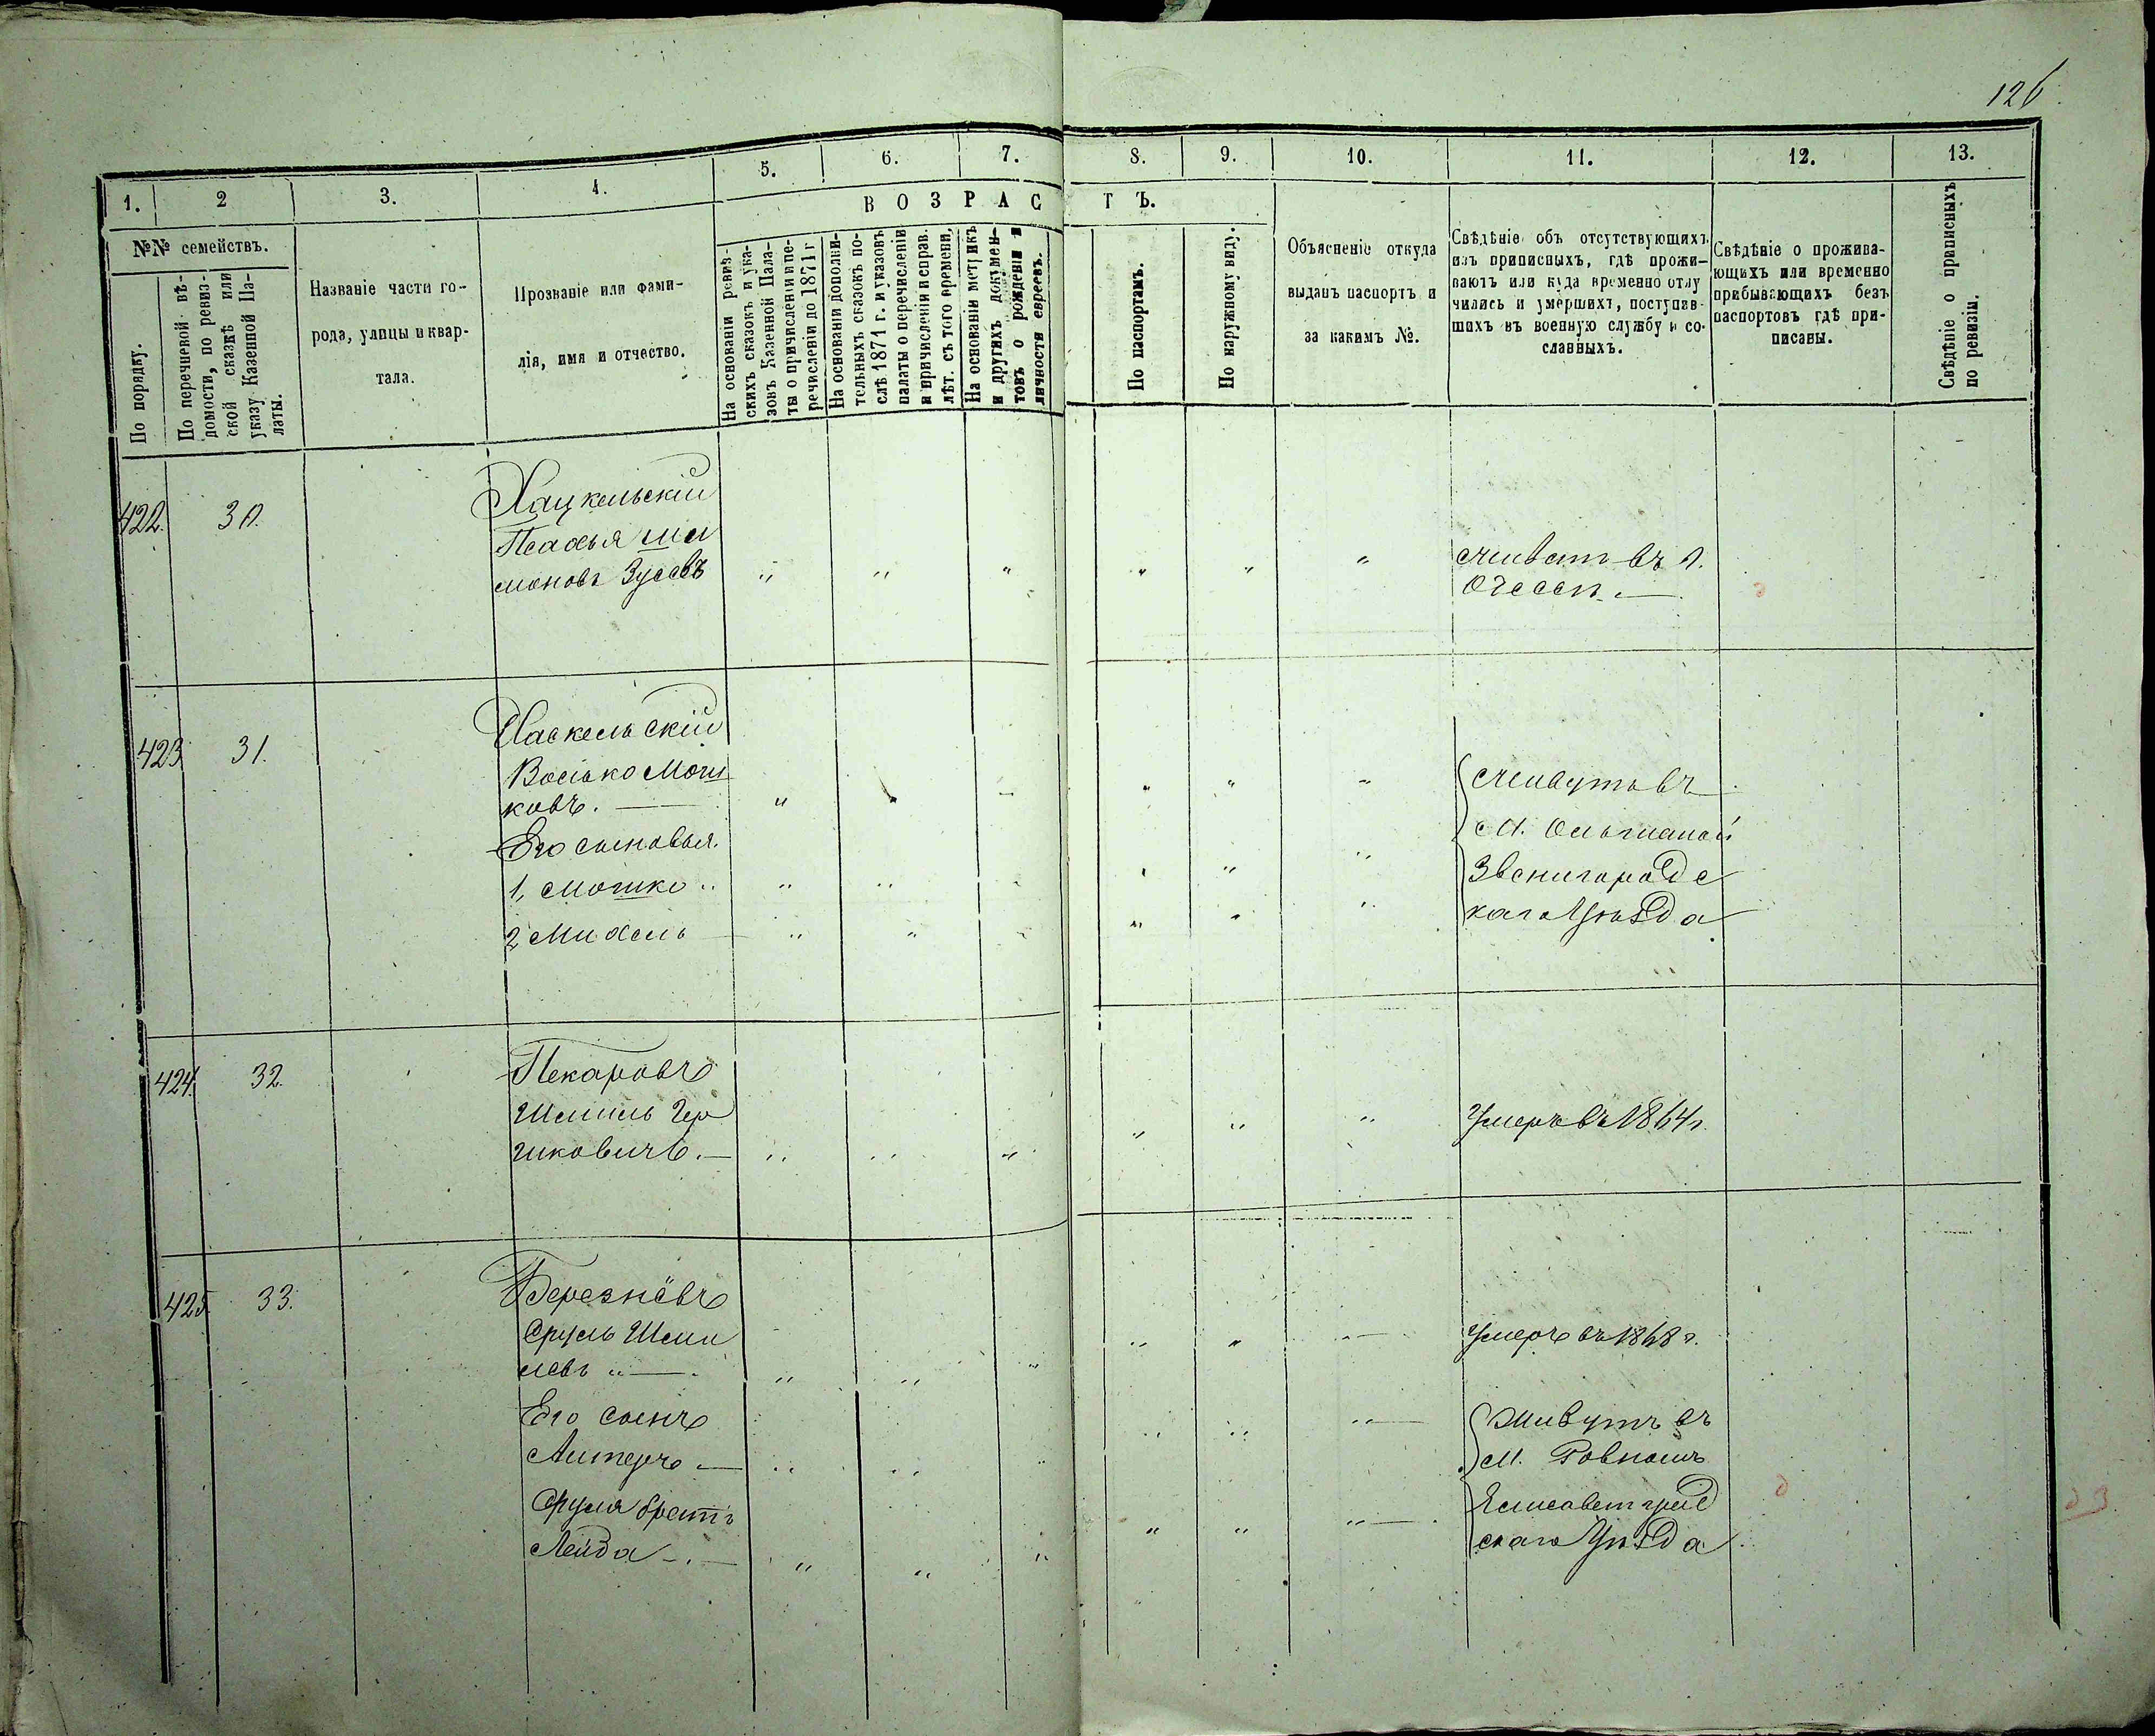 126
1. 2 3. 4. 5. 6. 7. 8. 9. 10. 11. 12. 13.
ВОЗРАСТЪ.
№№ семействъ.
По порядку.
По перечневой вѣ-
домости, по ревиз-
ской сказкѣ или
указу Казенной Па-
латы.
Названіе части го-
рода, улицы и квар-
тала.
Прозваніе или фами-
лія, имя и отчество.
На основаніи ревиз-
скихъ сказокъ и ука-
зовъ Казенной Пала-
ты о причисленіи и пе-
речисленіи до 1871 г
На основаніи дополни-
тельныхъ сказокъ по-
слѣ 1871 г. и указовъ
палаты о перечисленіи
и причисленіи и справ.
лѣт. съ того времени,
На основаніи метрикъ
и другихъ докумен-
товъ о рожденіи и
личности евреевъ.
По паспортамъ.
По наружному виду.
Объясненіе откуда
выданъ паспортъ и
за какимъ №.
Свѣдѣніе объ отсутствующихъ
изъ приписныхъ, гдѣ прожи-
ваютъ или куда временно отлу
чились и умершихъ, поступив-
шихъ въ военную службу и со-
сланныхъ.
Свѣдѣніе о прожива-
ющихъ или временно
прибывающихъ безъ
паспортовъ гдѣ при-
писаны.
Свѣдѣніе о приписныхъ
по ревизіи.
422. 30.
Хацкельскій
Псахья Ши
моновъ Зусевъ
живетъ въ г.
Одессѣ.
423 31.
Хаскельскій
Воско Мош
ковъ.
Его сыновья.
1, Мошко
2 Михель
живутъ въ
М. Ольшаной
Звенигородс
каго Уѣзда
424. 32.
Пекаровъ
Шмиль Гер
шковичъ.
Умеръ въ 1864 г.
425 33.
Березнёвъ
Сруль Шми
левъ
Умеръ въ 1868 г.
Его сынъ
Алтеръ
Сруля братъ
Лейба
Живутъ въ
М. Ровномъ
Елисаветград
скаго Уѣзда